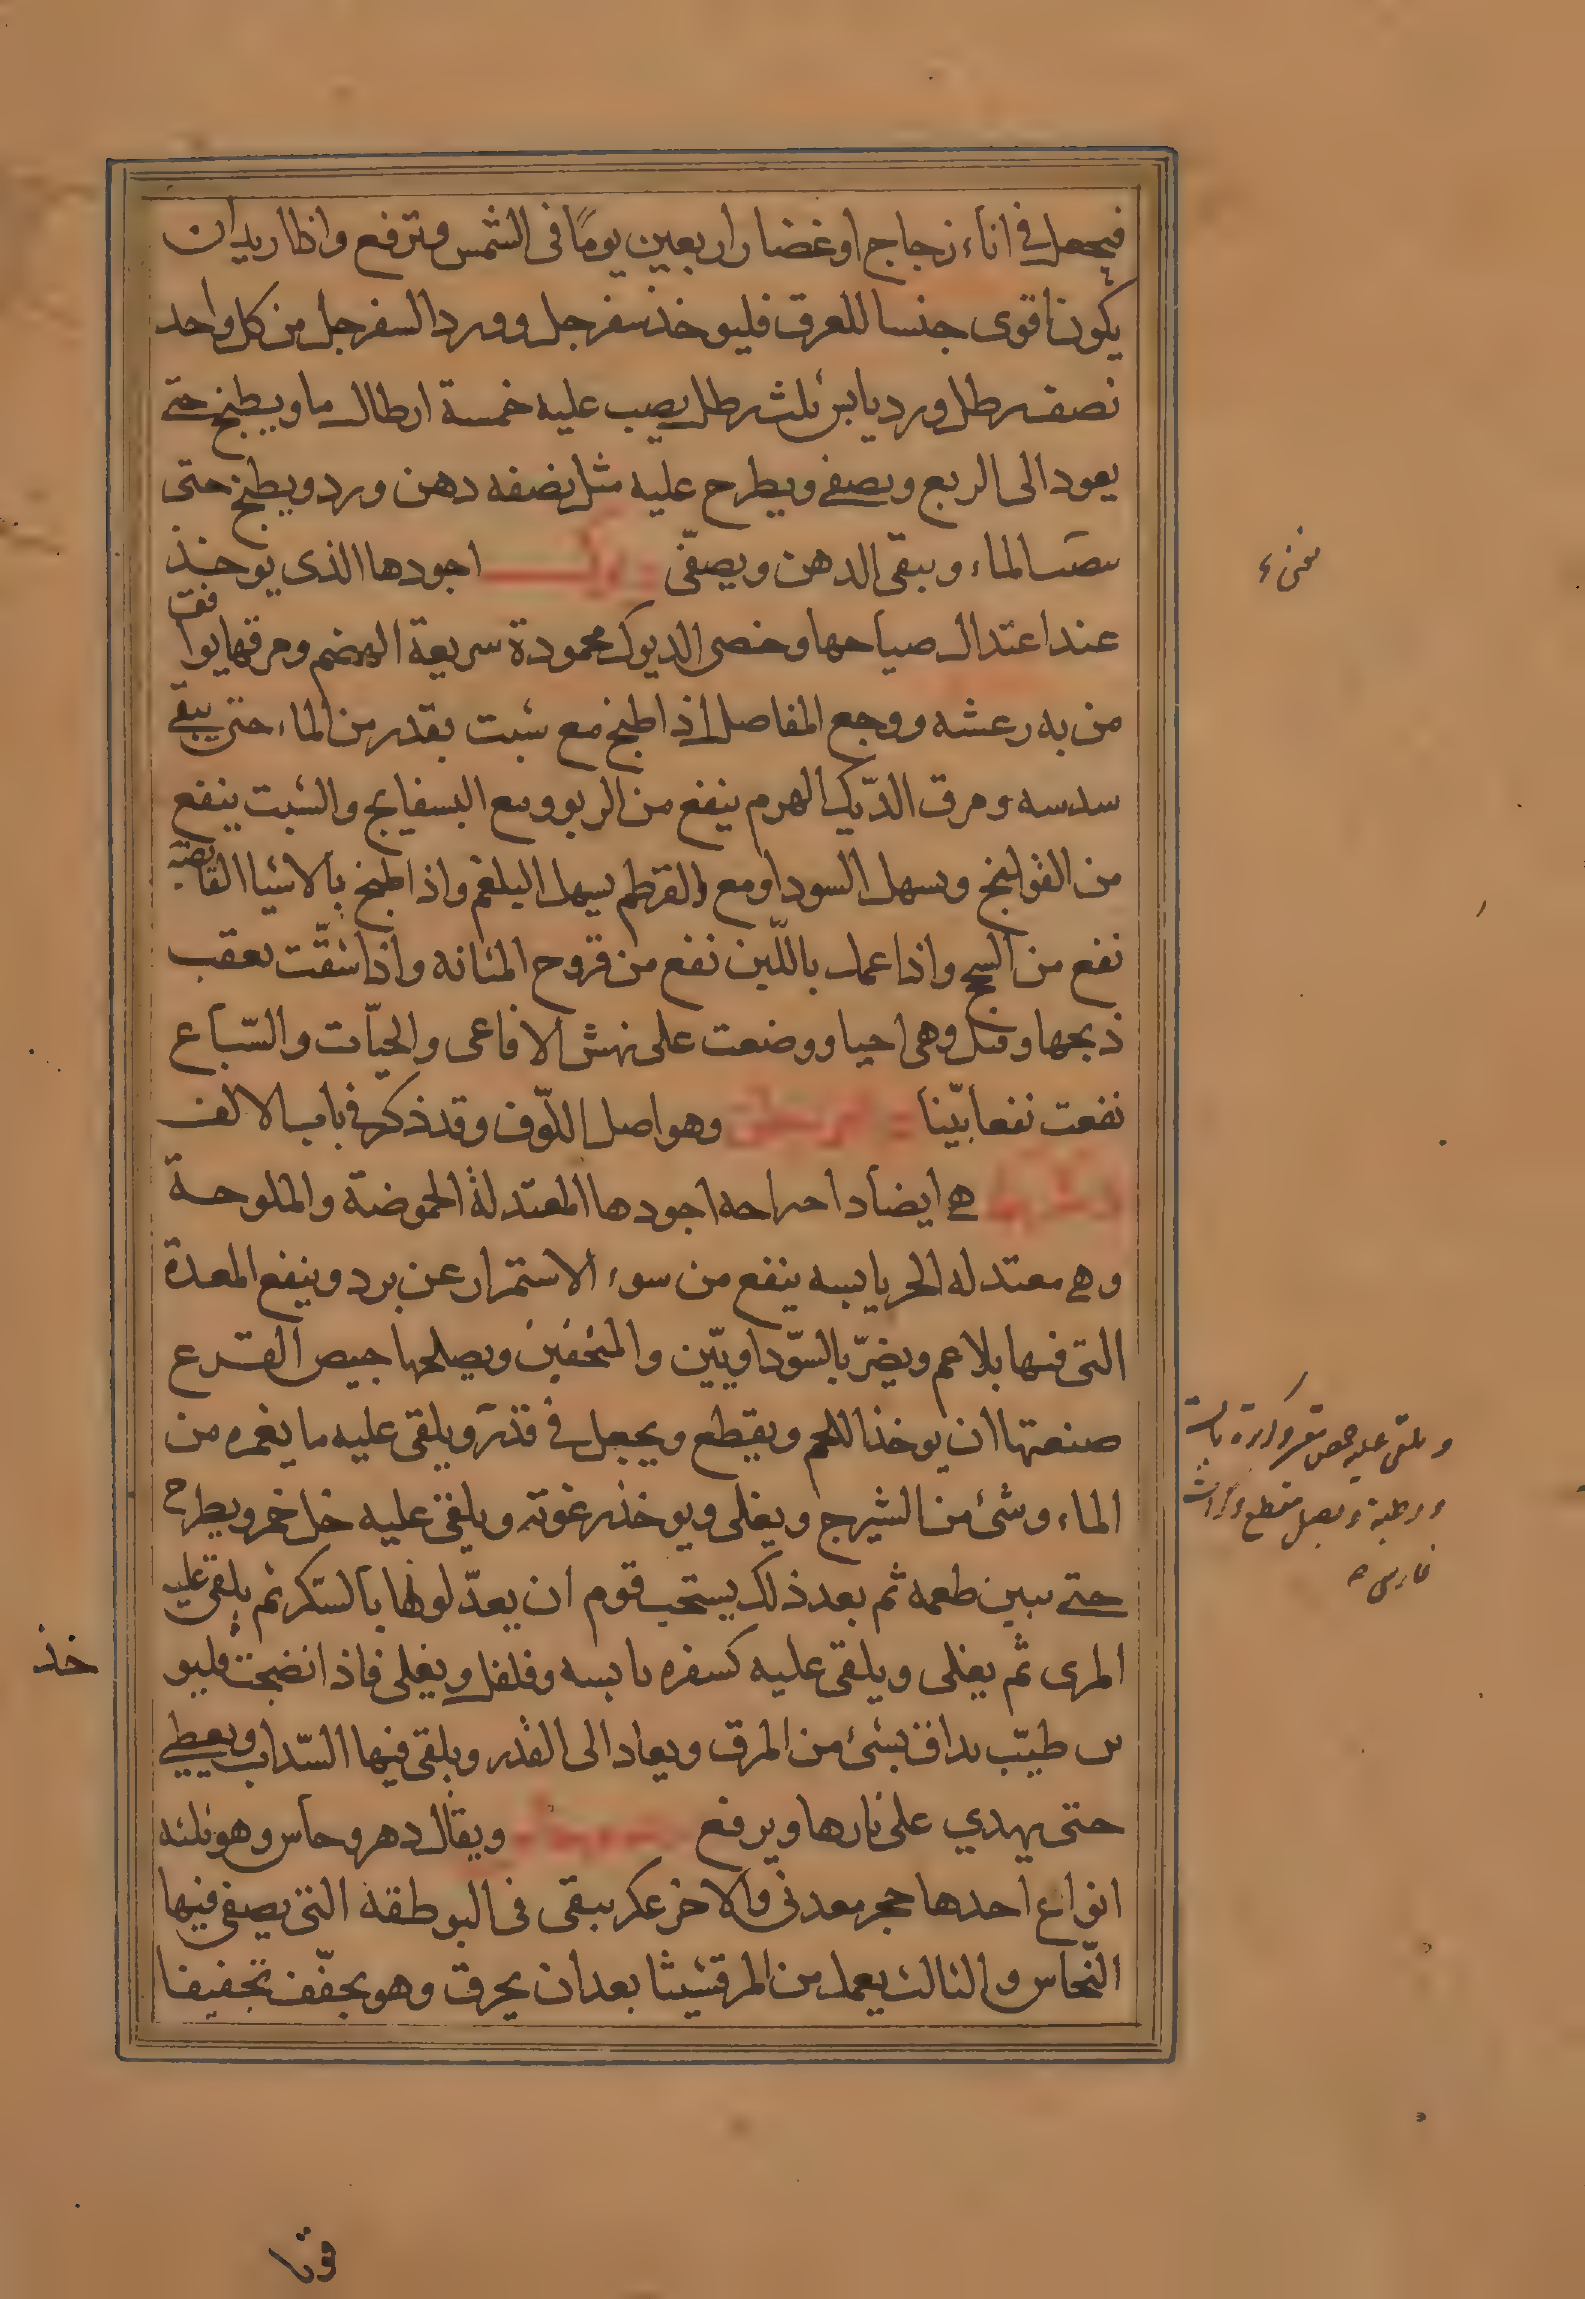 فيجعل في اناء زجاج او غضار اربعين يومًا في الشمس وترفع واذا اريد ان
يكون اقوى جنسا للعرق فليوخذ سفرجل وورد السفرجل من كل واحد
نصف رطل ورد يابس ثلث رطل يصب عليه خمسة ارطال ما ويطبخ حتى
يعود الى الربع ويصفى ويطرح عليه مثل نصفه دهن ورد ويطبخ حتى
الماء ويبقى الدهن ويصفّى ديوك اجودها الذى يوخذ
عند اعتدال صياحها وخصى الديوك محمودة سريعة الهضم ومرقها يوافق
من به رعشه ووجع المفاصل اذ اطبخ مع شبت بقدر من الماء حتى يبقى
سدسه ومرق الدّيك الهرم ينفع من الربو ومع البسفايج والشبت ينفع
من القولنج ويسهل السودا ومع القرطم يسهل البلغم واذا طبخ بالاشيا القابضة
نفع من السحج واذا عمل باللّبن نفع من قروح المثانه واذا شقّت بعقب
ذبحها وقبل وهى احيا ووضعت على نهش الافاعى والحيّات والسّباع
نفعت نفعا بيّنا وهو اصل اللّوف وقد ذكر في باب الالف
هي ايضا اجودها المعتدلة الحموضة والملوحة
وهي معتدله الحر يابسه ينفع من سوء الاستمرار عن برد وينفع المعدة
التى فيها بلاغم ويضرّ بالسّوداويّين والمنحفين ويصلحها جيص القرع
صنعتها ان يوخذ اللحم ويقطع ويجعل في قدر ويلقى عليه ما يغمره من
الماء وشئ من الشيرج ويغلى ويوخذ رغوته ويلقى عليه خل خمر ويطرح
حتى يبين طعمه ثم بعد ذلك يستحب قوم ان يعدّلوها بالسّكر ثم يلقى عليه
المرى ثم يغلى ويلقى عليه كسفره يابسه وفلفل ويغلى فاذا نضجت فليو
خذ
طيّب يداف بشئ من المرق ويعاد الى القدر ويلقى فيها السّداب ويعطى
حتى يهدي على نارها ويرفع ويقال وهو ثلثه
انواع احدها حجر معدنى والاخر عكر يبقى فى البوطقة التى يصفى فيها
النّحاس والثالث يعمل من المرقشيثا بعد ان يحرق وهو يجفّف تجفيفا
ويلقى عليه حمص مقشر
ورطبة وبصل مقطع وكراث
فارسى